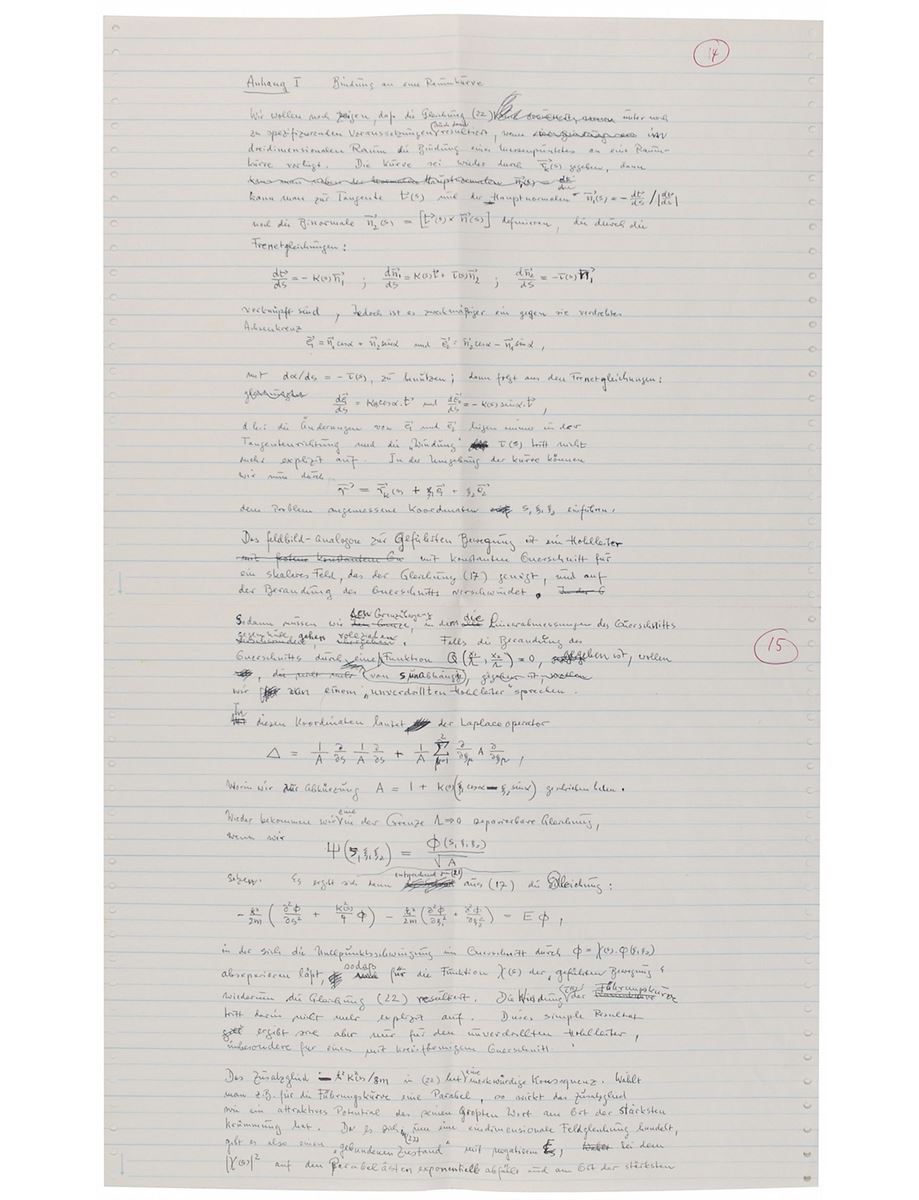 14
Anhang I Bindung an eine Raumkurve
Wir wollen noch zeigen, daß die Gleichung (22) unter noch
zu spezifizierenden Voraussetzungen resultiert, wenn im
dreidimensionalen Raum die Bindung eines Massenpunktes an eine Raum-
kurve vorliegt. Die Kurve sei wieder durch gegeben, dann
kann man zur Tangente t⃗(s) und der Hauptnormalen n⃗₁(s) = - dt⃗/ds / |dt⃗/ds|
und die Binormale n⃗₂(s) = [t⃗(s) × n⃗(s)] definieren, die durch die
Frenetgleichungen:
dt⃗/ds = - K(s) n⃗₁ ; dn⃗₁/ds = K(s) t⃗ + τ(s) n⃗₂ ; dn⃗₂/ds = - τ(s) n⃗₁
verknüpft sind, Jedoch ist es zweckmäßiger ein gegen sie verdrehtes
Achsenkreuz
e⃗₁ = n⃗₁ cosα + n⃗₂ sinα und e⃗₂ = n⃗₂ cosα - n⃗₁ sinα ,
mit dα/ds = - τ(s), zu benützen; dann folgt aus den Frenetgleichungen:
de⃗₁/ds = K(s) cosα · t⃗ und de⃗₂/ds = - K(s) sinα · t⃗ ,
d.h.: die Änderungen von e⃗₁ und e⃗₂ liegen immer in der
Tangentenrichtung und die „Windung" τ(s) tritt nicht
mehr explizit auf. In der Umgebung der Kurve können
wir nun durch
r⃗ = r⃗ₖ(s) + ξ₁ e⃗₁ + ξ₂ e⃗₂
dem Problem angemessene Koordinaten s, ξ₁, ξ₂ einführen.
Das Feldbild-Analogon zur Geführten Bewegung ist ein Hohlleiter
mit konstanten Querschnitt für
ein skalares Feld, das der Gleichung (17) genügt, und auf
der Berandung des Querschnitts verschwindet.
Sodann müssen wir den Grenzübergang, in dem die Linearabmessungen des Querschnitts
gegen Null gehen vollziehen. Falls die Berandung des
15
Querschnitts durch eine Funktion Q(x₁/Λ, x₂/Λ) = 0, gegeben ist, wollen
(von s unabhängige)
wir von einem „unverdrillten Hohlleiter" sprechen.
In diesen Koordinaten lautet der Laplaceoperator
Δ = 1/A ∂/∂s 1/A ∂/∂s + 1/A Σ ∂/∂ξμ A ∂/∂ξμ ,
Worin wir zur Abkürzung A = 1 + K(s)(ξ₁ cosα - ξ₂ sinα) geschrieben haben.
Wieder bekommen wir eine in der Grenze Λ→0 separierbare Gleichung,
wenn wir
Ψ(s, ξ₁ ξ₂) = Φ(s, ξ₁ ξ₂) / √A
setzen. Es ergibt sich dann entsprechend aus (17) die Gleichung:
- ħ²/2m (∂²Φ/∂s² + K²(s)/4 Φ) - ħ²/2m (∂²Φ/∂ξ₁² + ∂²Φ/∂ξ₂²) = E Φ ,
in der sich die Nullpunktsschwingung im Querschnitt durch Φ = χ(s)·φ(ξ₁ξ₂)
abseparieren läßt, sodaß für die Funktion χ(s) der „geführten Bewegung"
wiederum die Gleichung (22) resultiert. Die Windung τ(s) der Führungskurve
tritt darin nicht mehr explizit auf. Dieses simple Resultat
ergibt sich aber nur für den unverdrillten Hohlleiter,
insbesondere für einen mit kreisförmigem Querschnitt.
Das Zusatzglied - ħ²K²(s)/8m in (22) hat eine merkwürdige Konsequenz. Wählt
man z.B. für die Führungskurve eine Parabel, so wirkt das Zusatzglied
wie ein attraktives Potential das seinen Größten Wert am Ort der stärksten
Krümmung hat. Da es sich um eine eindimensionale Feldgleichung handelt,
gibt es also einen „gebundenen Zustand" mit negativem E, bei dem
|χ(s)|² auf den Parabelästen exponentiell abfällt und am Ort der stärksten